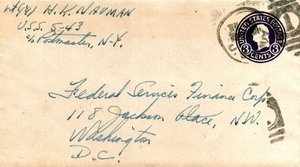 H. K. Nauman
U.S.S. S-43
c/o Postmaster, N.Y.
UNITED STATES POSTAGE
3 CENTS 3
Federal Services Finance Corp.
118 Jackson Place, N.W.
Washington
D.C.